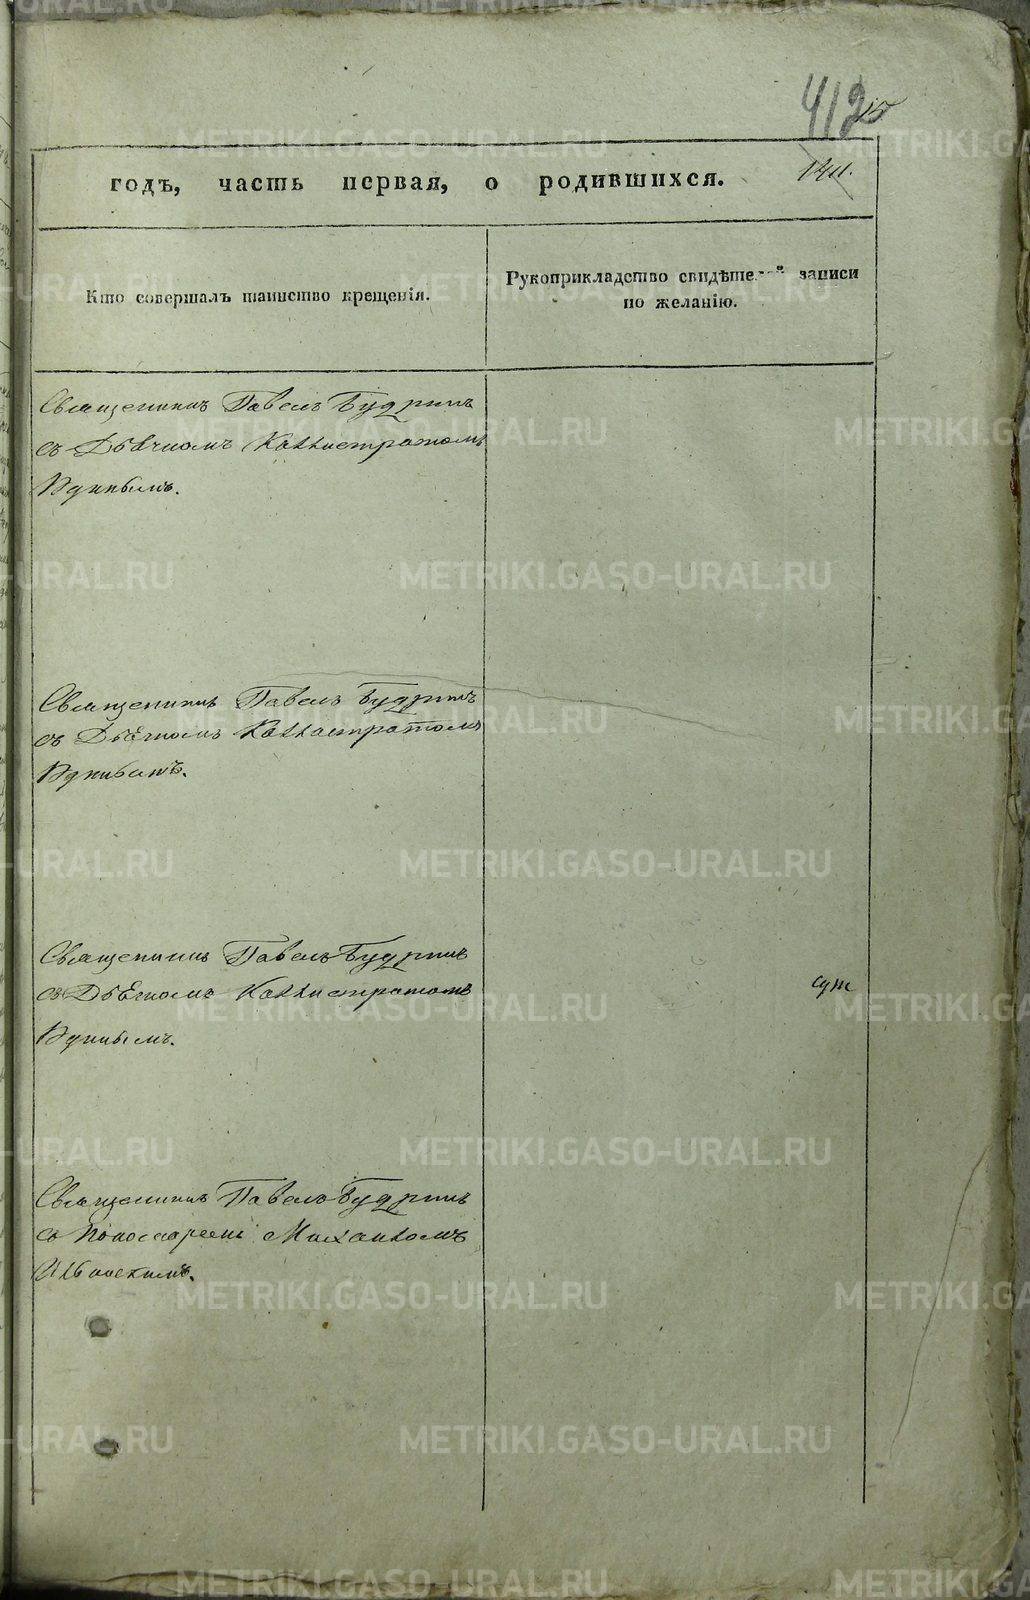 412
15
годъ, часть первая, о родившихся.
Кто совершалъ таинство крещенія.
Рукоприкладство свидѣтелей записи
по желанію.
Священникъ Павелъ Будринъ
съ Дьячкомъ Каллистратомъ
Священникъ Павелъ Будринъ
съ Дьячкомъ Каллистратомъ
Священникъ Павелъ Будринъ
съ Дьячкомъ Каллистратомъ
Священникъ Павелъ Будринъ
съ Пономаремъ Михаиломъ
METRIKI.GASO-URAL.RU